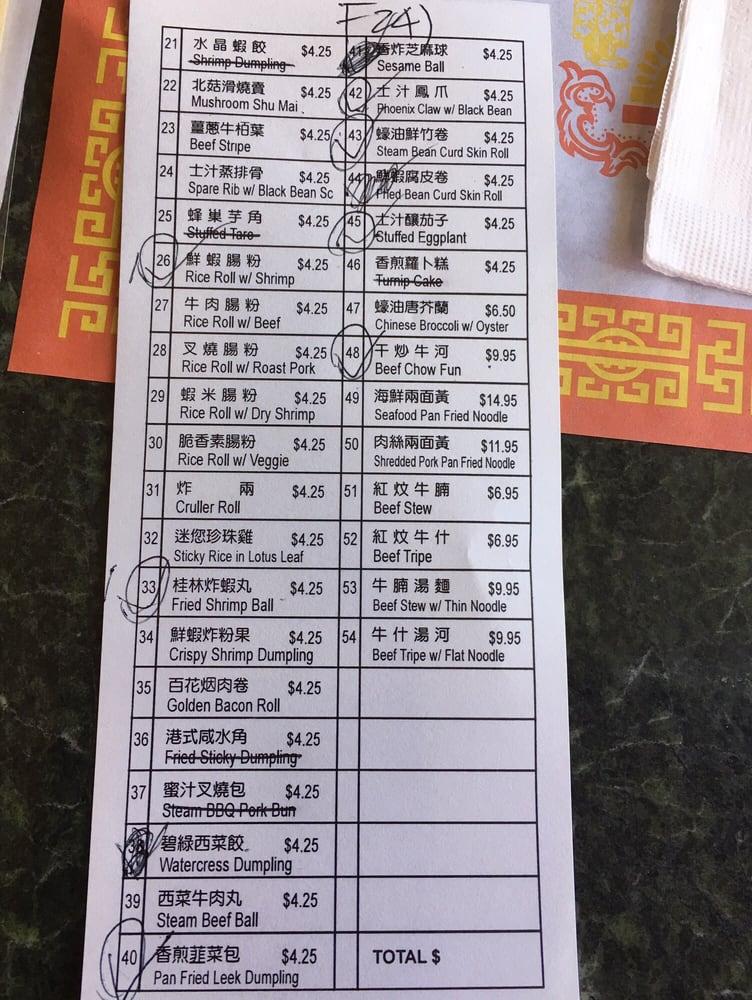 21 水晶蝦餃 $4.25
Shrimp Dumpling
22 北菇滑燒賣 $4.25
Mushroom Shu Mai
23 薑蔥牛栢葉 $4.25
Beef Stripe
24 士汁蒸排骨 $4.25
Spare Rib w/ Black Bean Sc
25 蜂巢芋角 $4.25
Stuffed Taro
26 鮮蝦腸粉 $4.25
Rice Roll w/ Shrimp
27 牛肉腸粉 $4.25
Rice Roll w/ Beef
28 叉燒腸粉 $4.25
Rice Roll w/ Roast Pork
29 蝦米腸粉 $4.25
Rice Roll w/ Dry Shrimp
30 脆香素腸粉 $4.25
Rice Roll w/ Veggie
31 炸兩 $4.25
Cruller Roll
32 迷您珍珠雞 $4.25
Sticky Rice in Lotus Leaf
33 桂林炸蝦丸 $4.25
Fried Shrimp Ball
34 鮮蝦炸粉果 $4.25
Crispy Shrimp Dumpling
35 百花烟肉卷 $4.25
Golden Bacon Roll
36 港式咸水角 $4.25
Fried Sticky Dumpling
37 蜜汁叉燒包 $4.25
Steam BBQ Pork Bun
38 碧綠西菜餃 $4.25
Watercress Dumpling
39 西菜牛肉丸 $4.25
Steam Beef Ball
40 香煎韮菜包 $4.25
Pan Fried Leek Dumpling
41 香炸芝麻球 $4.25
Sesame Ball
42 士汁鳳爪 $4.25
Phoenix Claw w/ Black Bean
43 蠔油鮮竹卷 $4.25
Steam Bean Curd Skin Roll
44 鮮蝦腐皮卷 $4.25
Fried Bean Curd Skin Roll
45 士汁釀茄子 $4.25
Stuffed Eggplant
46 香煎蘿卜糕 $4.25
Turnip Cake
47 蠔油唐芥蘭 $6.50
Chinese Broccoli w/ Oyster
48 干炒牛河 $9.95
Beef Chow Fun
49 海鮮兩面黃 $14.95
Seafood Pan Fried Noodle
50 肉絲兩面黃 $11.95
Shredded Pork Pan Fried Noodle
51 紅炆牛腩 $6.95
Beef Stew
52 紅炆牛什 $6.95
Beef Tripe
53 牛腩湯麵 $9.95
Beef Stew w/ Thin Noodle
54 牛什湯河 $9.95
Beef Tripe w/ Flat Noodle
TOTAL $